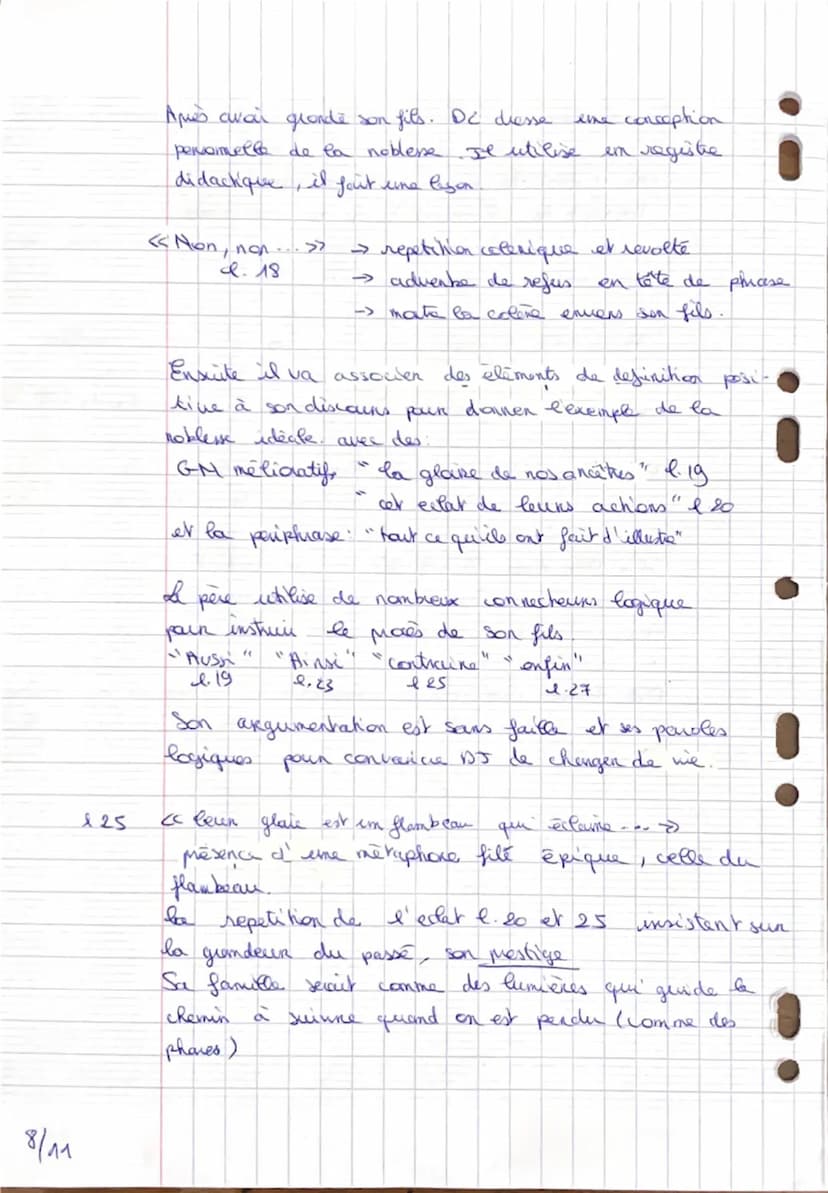 Après avoir grondé son fils. DL dresse une conception
personnelle de la noblesse. Il utilise un registre
didactique, il fait une leçon.
<< Non, non... >> → repetition colerique et revolte
l. 18 → adverbe de refus en tête de phrase
→ mote la colère envers son fils.
Ensuite il va associer des élèments de definition posi-
tive à son discours pour donner l'exemple de la
noblesse idéale. avec des:
GN mélioratifs "la gloire de nos ancêtres" l. 19
"cet eclat de leurs actions" l 20
et la periphrase: "tout ce qu'ils ont fait d'illustre"
Le père utilise de nombreux connecteurs logique
pour instruire le procès de son fils.
"Aussi" "Ainsi" "contraire" "enfin"
l. 19 l. 23 l 25 l. 27
Son argumentation est sans faille et ses paroles
logiques pour convaincre DJ de changer de vie.
l 25 << leur gloire est un flambeau qui éclaire... >>
présence d'une métaphore filé épique, celle du
flambeau.
la repetition de l'eclat l. 20 et 25 insistent sur
la grandeur du passé, son prestige
Sa famille serait comme des lumières qui guide le
chemin à suivre quand on est perdu (comme des
phares)
8/11